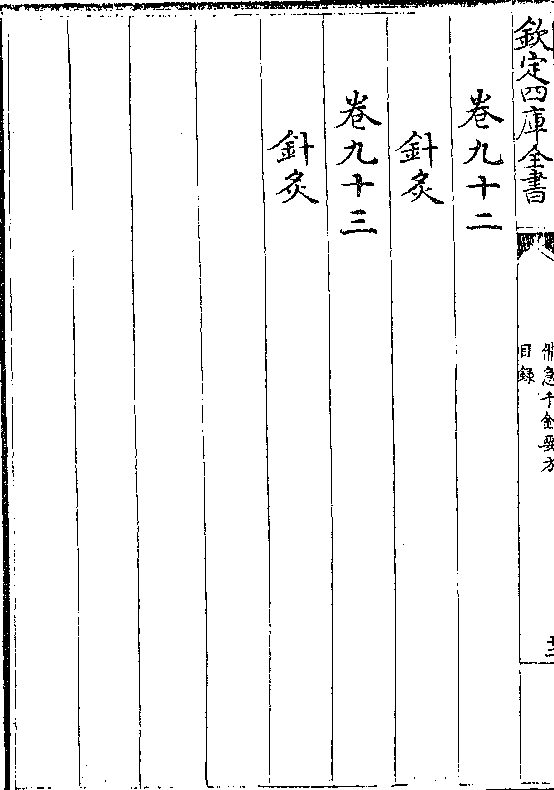 欽定四庫全書
備急千金要方
目錄
卷九十二
針灸
卷九十三
針灸